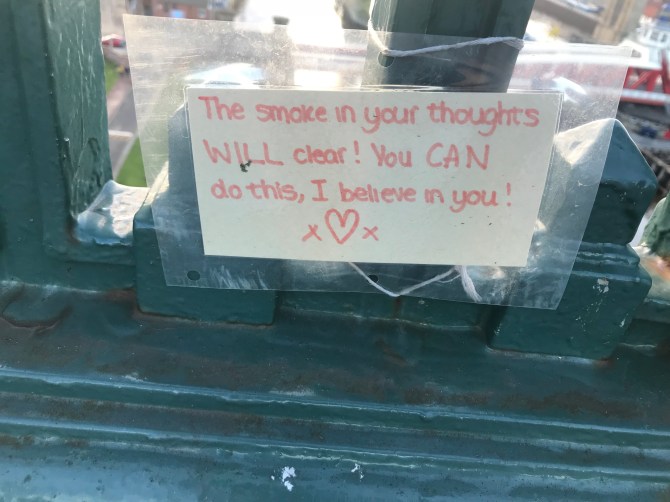 The smoke in your thoughts
WILL clear! You CAN
do this, I believe in you!
x♡x